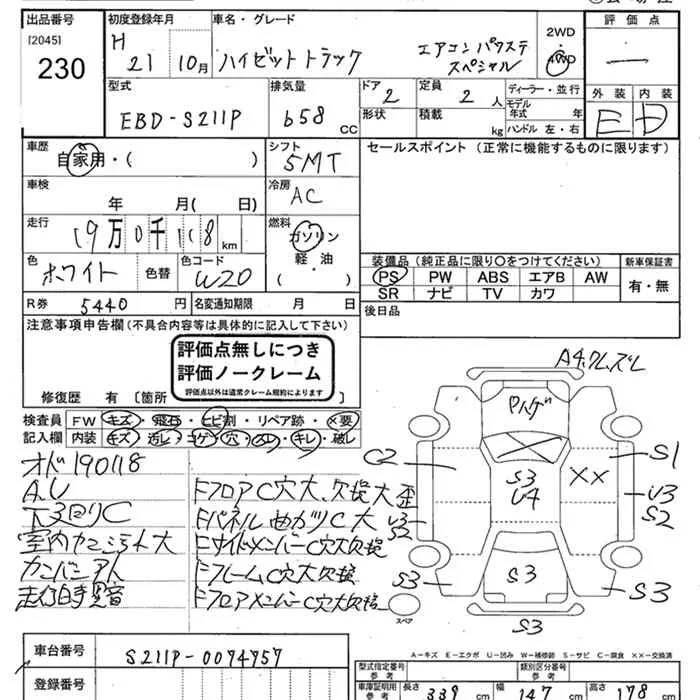 出品番号
[2045]
230
初度登録年月
H 21 10月
車名・グレード
ハイゼットトラック
エアコンパワステ
スペシャル
2WD
・
4WD
評価点
—
外装 内装
E D
型式
EBD-S211P
排気量
658 CC
ドア
2
定員
2 人
形状
積載
kg
ディーラー・並行
モデル
年式 年
ハンドル 左・右
車歴
自家用・( )
シフト
5MT
セールスポイント(正常に機能するものに限ります)
車検
年 月( 日)
冷房
AC
走行
19万0千118km
燃料
ガソリン
軽・油
( )
色
ホワイト
色替
色コード
W20
装備品(純正品に限り〇をつけてください)
PS PW ABS エアB AW
SR ナビ TV カワ
新車保証書
有・無
R券 5440 円
名変通知期限 月 日
後日品
注意事項申告欄(不具合内容等は具体的に記入して下さい)
評価点無しにつき
評価ノークレーム
評価点以外は通常クレーム規約によります
修復歴 有〔箇所
検査員
記入欄
FW キズ・飛石・ヒビ割・リペア跡・×要
内装 キズ・汚レ・コゲ・穴・スレ・キレ・破レ
オド190118
A.U
下回りC
Fフロア C穴大、欠損大 歪
Fパネル曲ガリC大
FサイドメンバーC穴大欠損
FフレームC穴大欠損
FフロアメンバーC穴大欠損
A4.クレズレ
Pハゲ
C2
S1
S3
U4
××
U3
S2
U3
S2
S3
S3
S3
S3
スペア
A-キズ E-エクボ U-凹み W-補修跡 S-サビ C-腐食 ××-交換済
車台番号
S211P-0074757
登録番号
型式指定番号
参考
類別区分番号
参考
車庫証明用
参考
長さ 339 cm
幅 147 cm
高さ 178 cm